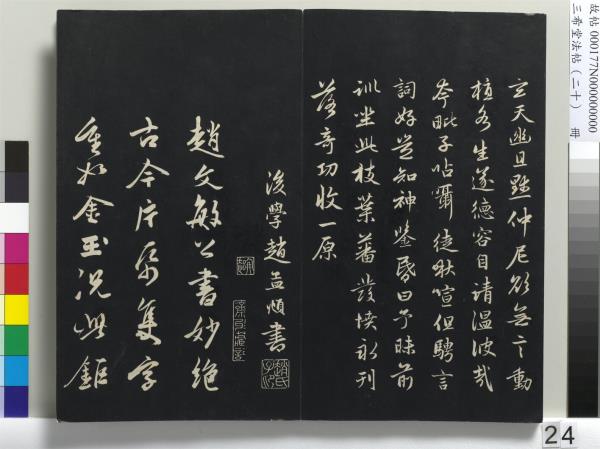 玄天幽且默仲尼欲無言動
植各生遂德容自清溫彼哉
夸毗子呫囁徒啾喧但騁言
詞好豈知神鑒昏曰予昧前
訓坐此枝葉蕃發憤永刊
落奇功收一原
後學趙孟頫書
趙氏子昂
趙文敏公書妙絕
古今片紙隻字
重如金玉況此鉅
故帖 000177N000000000
三希堂法帖(二十) 冊
24